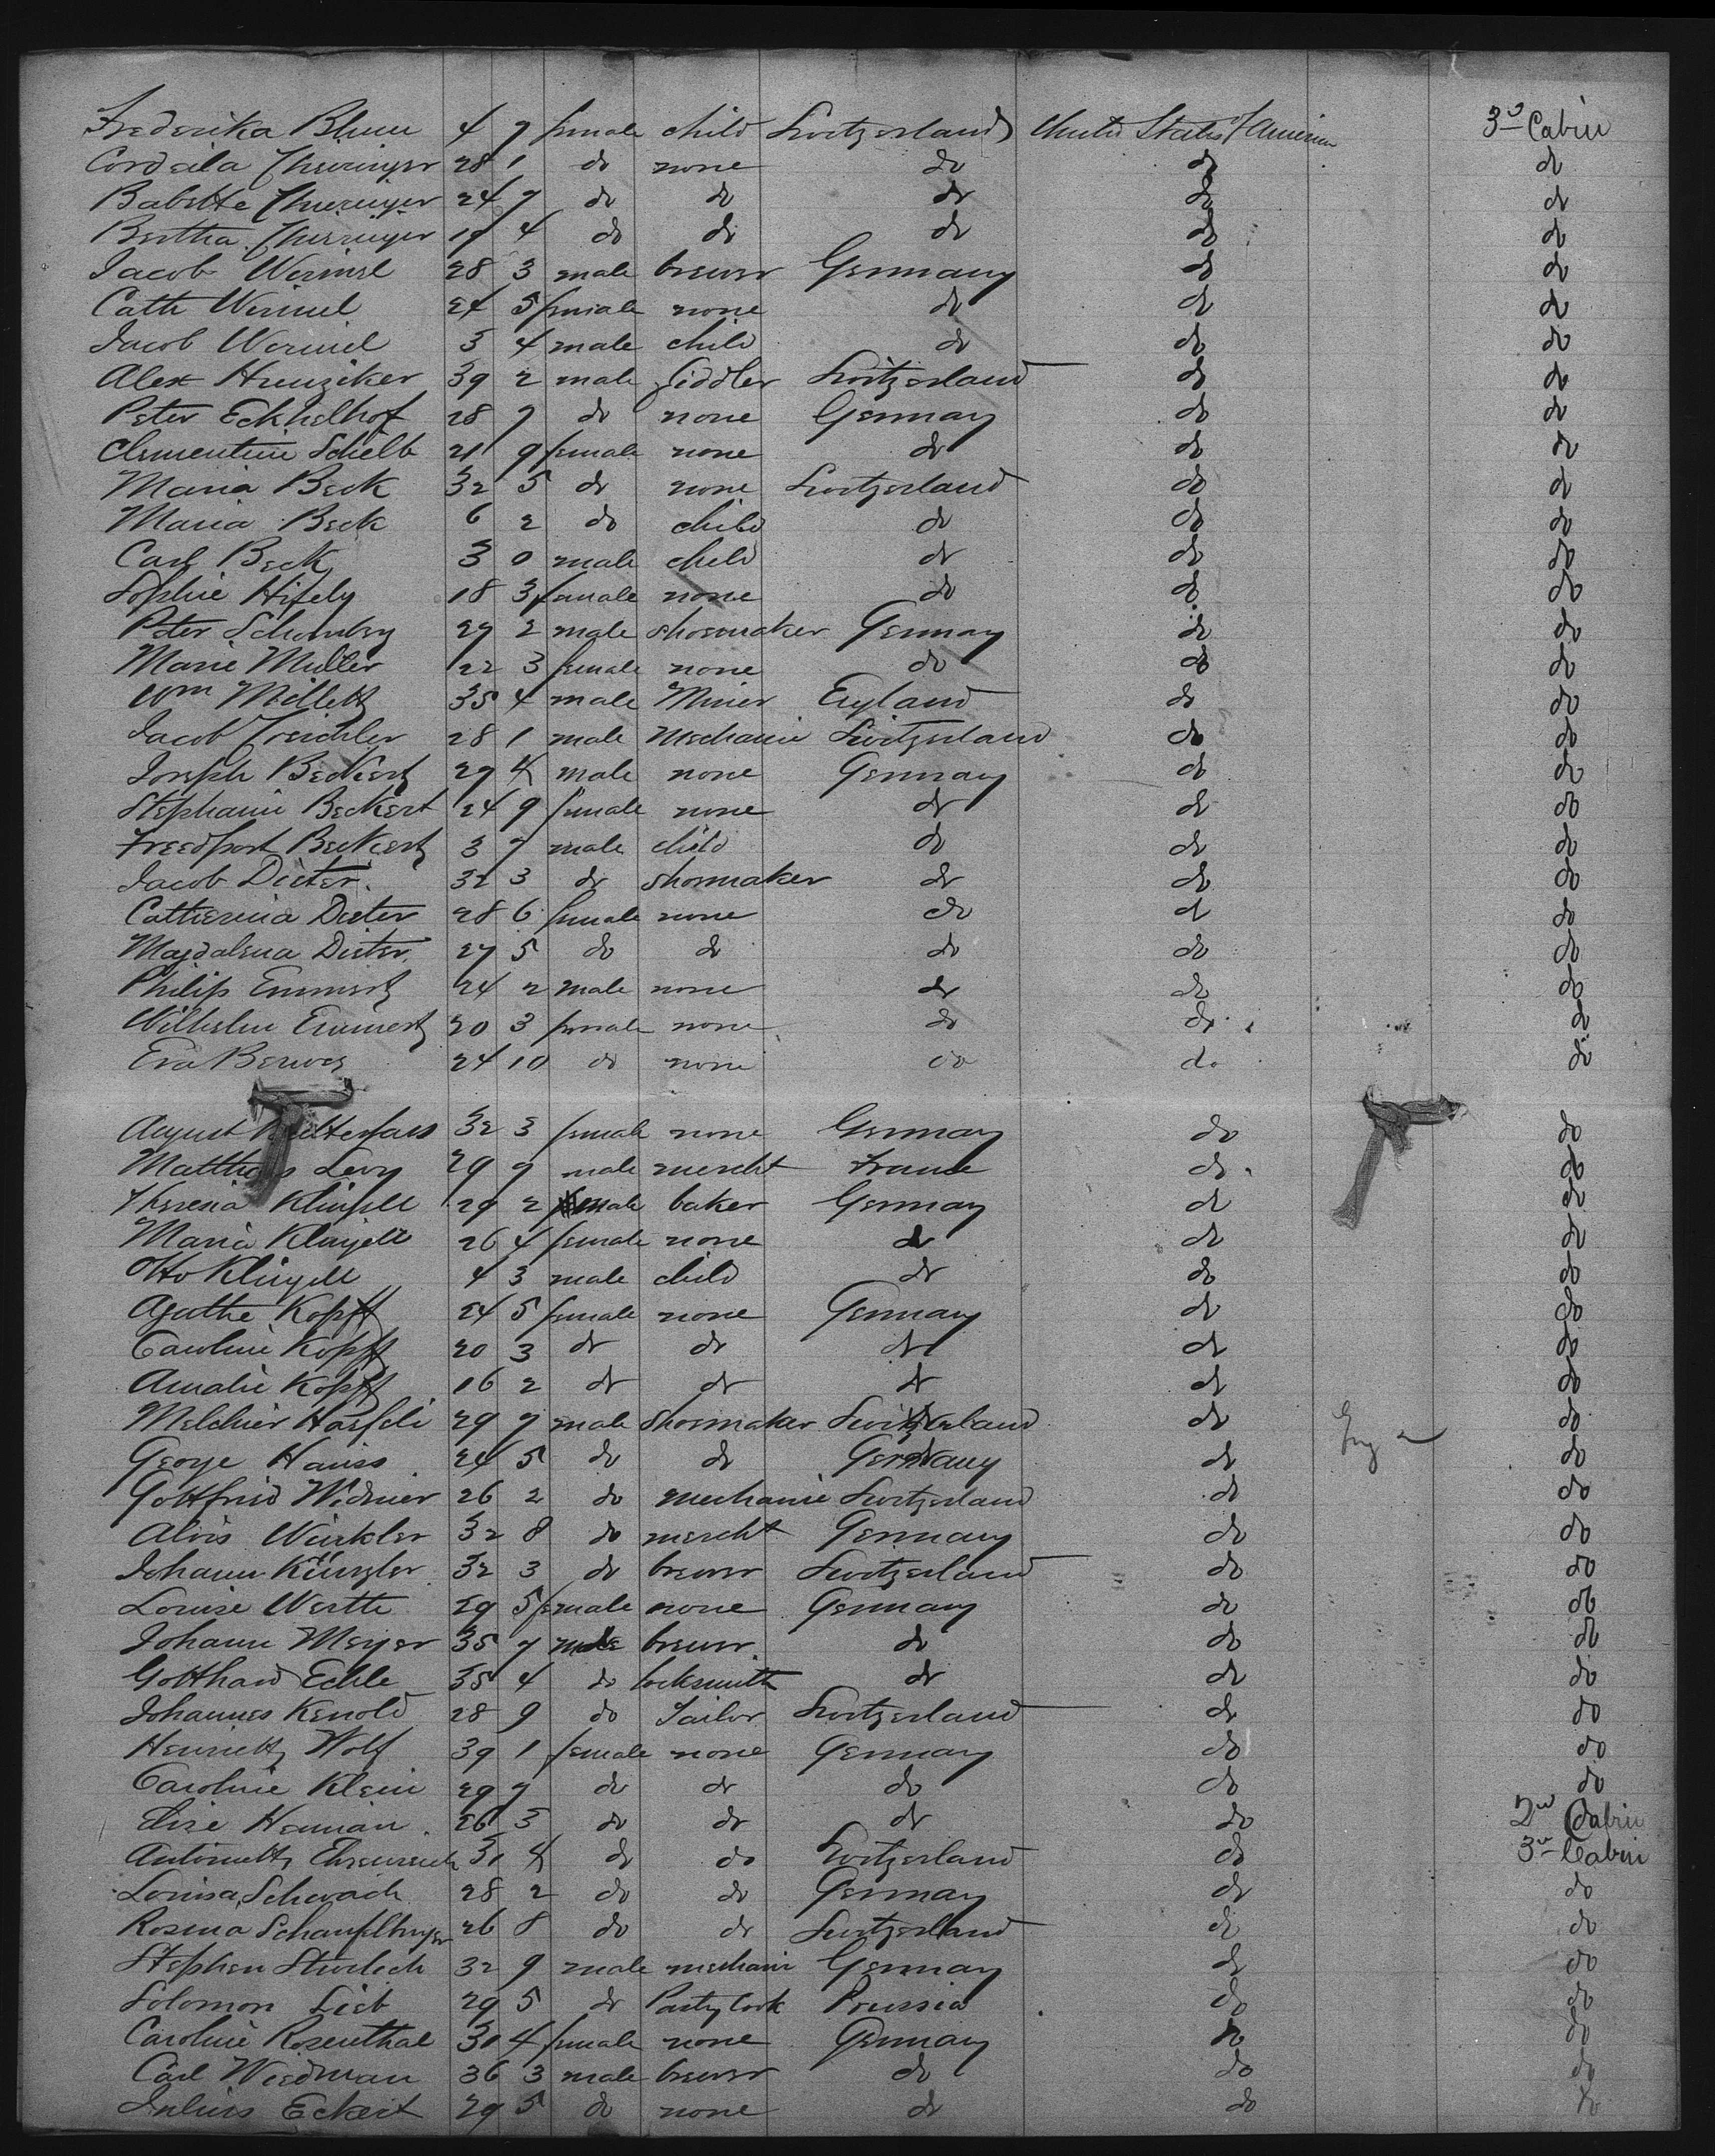 Frederika Blum 4 7 female child Switzerland United States of America 3d Cabin
Cordeila Theiringer 28 1 do none do do do
Babette Theiringer 24 7 do do do do do
Bertha Theiringer 19 4 do do do do do
Jacob Wermel 28 3 male brewer Germany do do
Cath Wermel 24 5 female none do do do
Jacob Wermel 3 4 male child do do do
Alex Hunziker 39 2 male fiddler Switzerland do do
Peter Eckhelhof 28 7 do none Germany do do
Clementine Schelb 21 9 female none do do do
Maria Beck 32 5 do none Switzerland do do
Maria Beck 6 2 do child do do do
Carl Beck 3 0 male child do do do
Sophie Hifely 18 3 female none do do do
Peter Schomberg 27 2 male shoemaker Germany do do
Marie Muller 22 3 female none do do do
Wm Millett 35 4 male Miner England do do
Jacob Treichler 28 1 male Mechanic Switzerland do do
Joseph Beckert 29 4 male none Germany do do
Stephanie Beckert 24 9 female none do do do
Beckert 3 7 male child do do do
Jacob Dieter. 32 3 do shoemaker do do do
Catherina Dieter 28 6 female none do do do
Magdalena Dieter. 27 5 do do do do do
Philip Emmert 24 2 male none do do do
Wilhelm Emmert 20 3 female none do do do
Eva 24 10 do none do do do
August 32 3 female none Germany do do
Matthias Levy 29 7 male mercht France do do
Theresia Klingele 29 2 male baker Germany do do
Maria Klingele 26 4 female none do do do
Otto Klingele 4 3 male child do do do
Agathe Kopff 24 5 female none Germany do do
Caroline Kopff 20 3 do do do do do
Amalie Kopff 16 2 do do do do do
Melchier Haefeli 29 7 male shoemaker Switzerland do do
George Hauss 24 5 do do Germany do do
Gottfried Widmer 26 2 do mechanic Switzerland do do
Alois Winkler 32 8 do mercht Germany do do
Johann Künzler 32 3 do brewer Switzerland do do
Louise Werth 29 5 female none Germany do do
Johann Meyer 35 7 male brewer do do do
Gotthard Echle 35 4 do locksmith do do do
Johannes Kenold 28 9 do Tailor Switzerland do do
Henrietta Wolf 39 1 female none Germany do do
Caroline Klein 29 7 do do do do do
Lise Herman. 26 3 do do do do 2nd Cabin
Antoinette Ehrenreich 31 4 do do Switzerland do 3d Cabin
Louisa Schwach 28 2 do do Germany do do
Rosina Schaufelberger 26 8 do do Switzerland do do
Stephen 32 9 male mechanic Germany do do
Solomon Lieb 29 5 do Pastry Cook Prussia do do
Caroline Rosenthal 30 4 female none Germany do do
Carl Wiedman 36 3 male brewer do do do
Julius Eckert 29 5 do none do do do